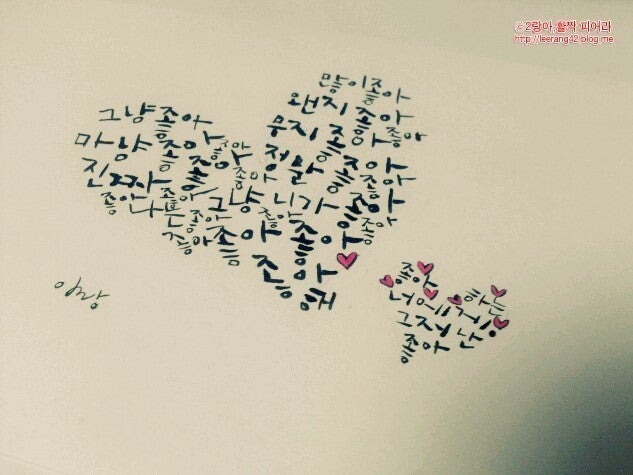 ⓒ2랑아.활짝 피어라
http://leerang42.blog.me
많이좋아
왠지 좋아
그냥좋아
무지 좋아 좋아
마냥 좋아 좋아
정말 좋아 좋아
진짜 좋아 좋아 좋아
좋아 나는 좋아 그냥 니가 좋아 좋아
좋아 좋아 좋아 좋아
좋아
이랑
좋아 하는
너에게
그저 난
좋아